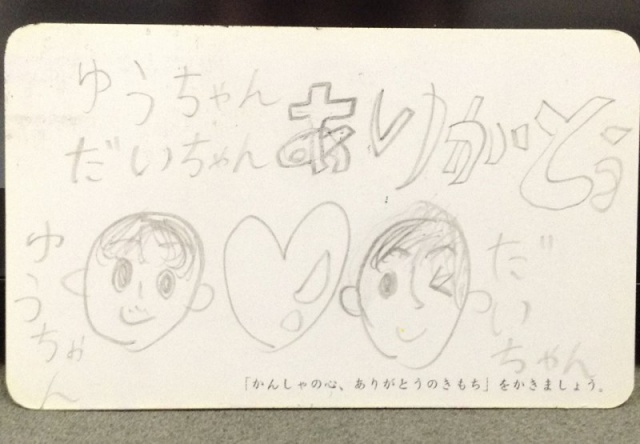 ゆうちゃん
だいちゃん
ありがとう
ゆうちゃん
だいちゃん
「かんしゃの心、ありがとうのきもち」をかきましょう。